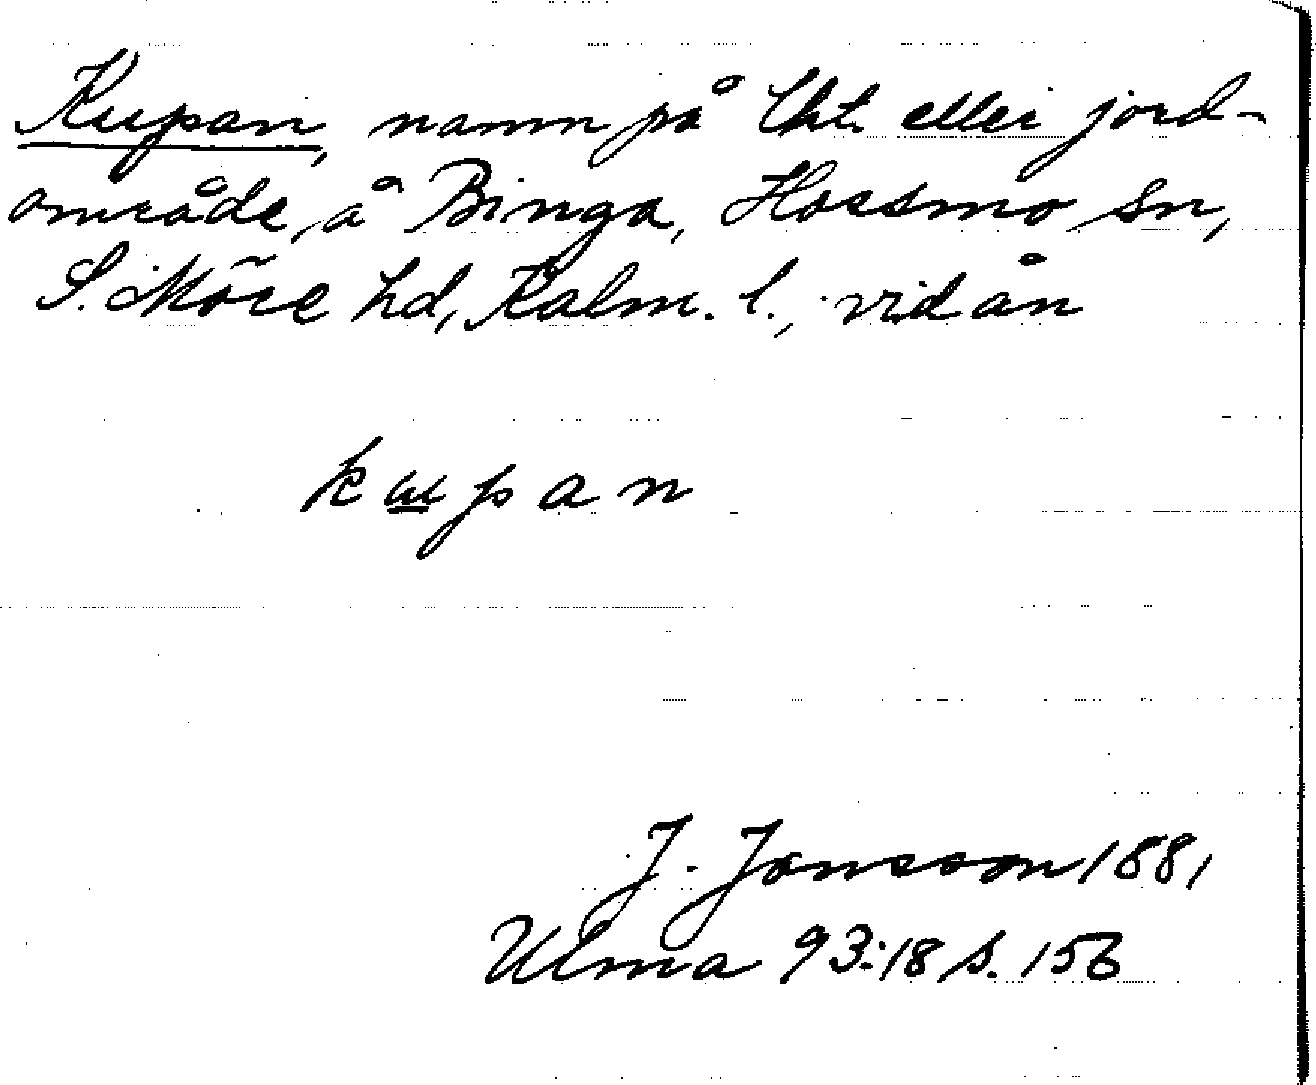 Kupan, namn på lht. eller jord-
område å Binga, Hossmo sn,
S. Möre hd, Kalm. l., vid ån
kupan
J. Jonsson 1881
Ulma 93:18 s. 156